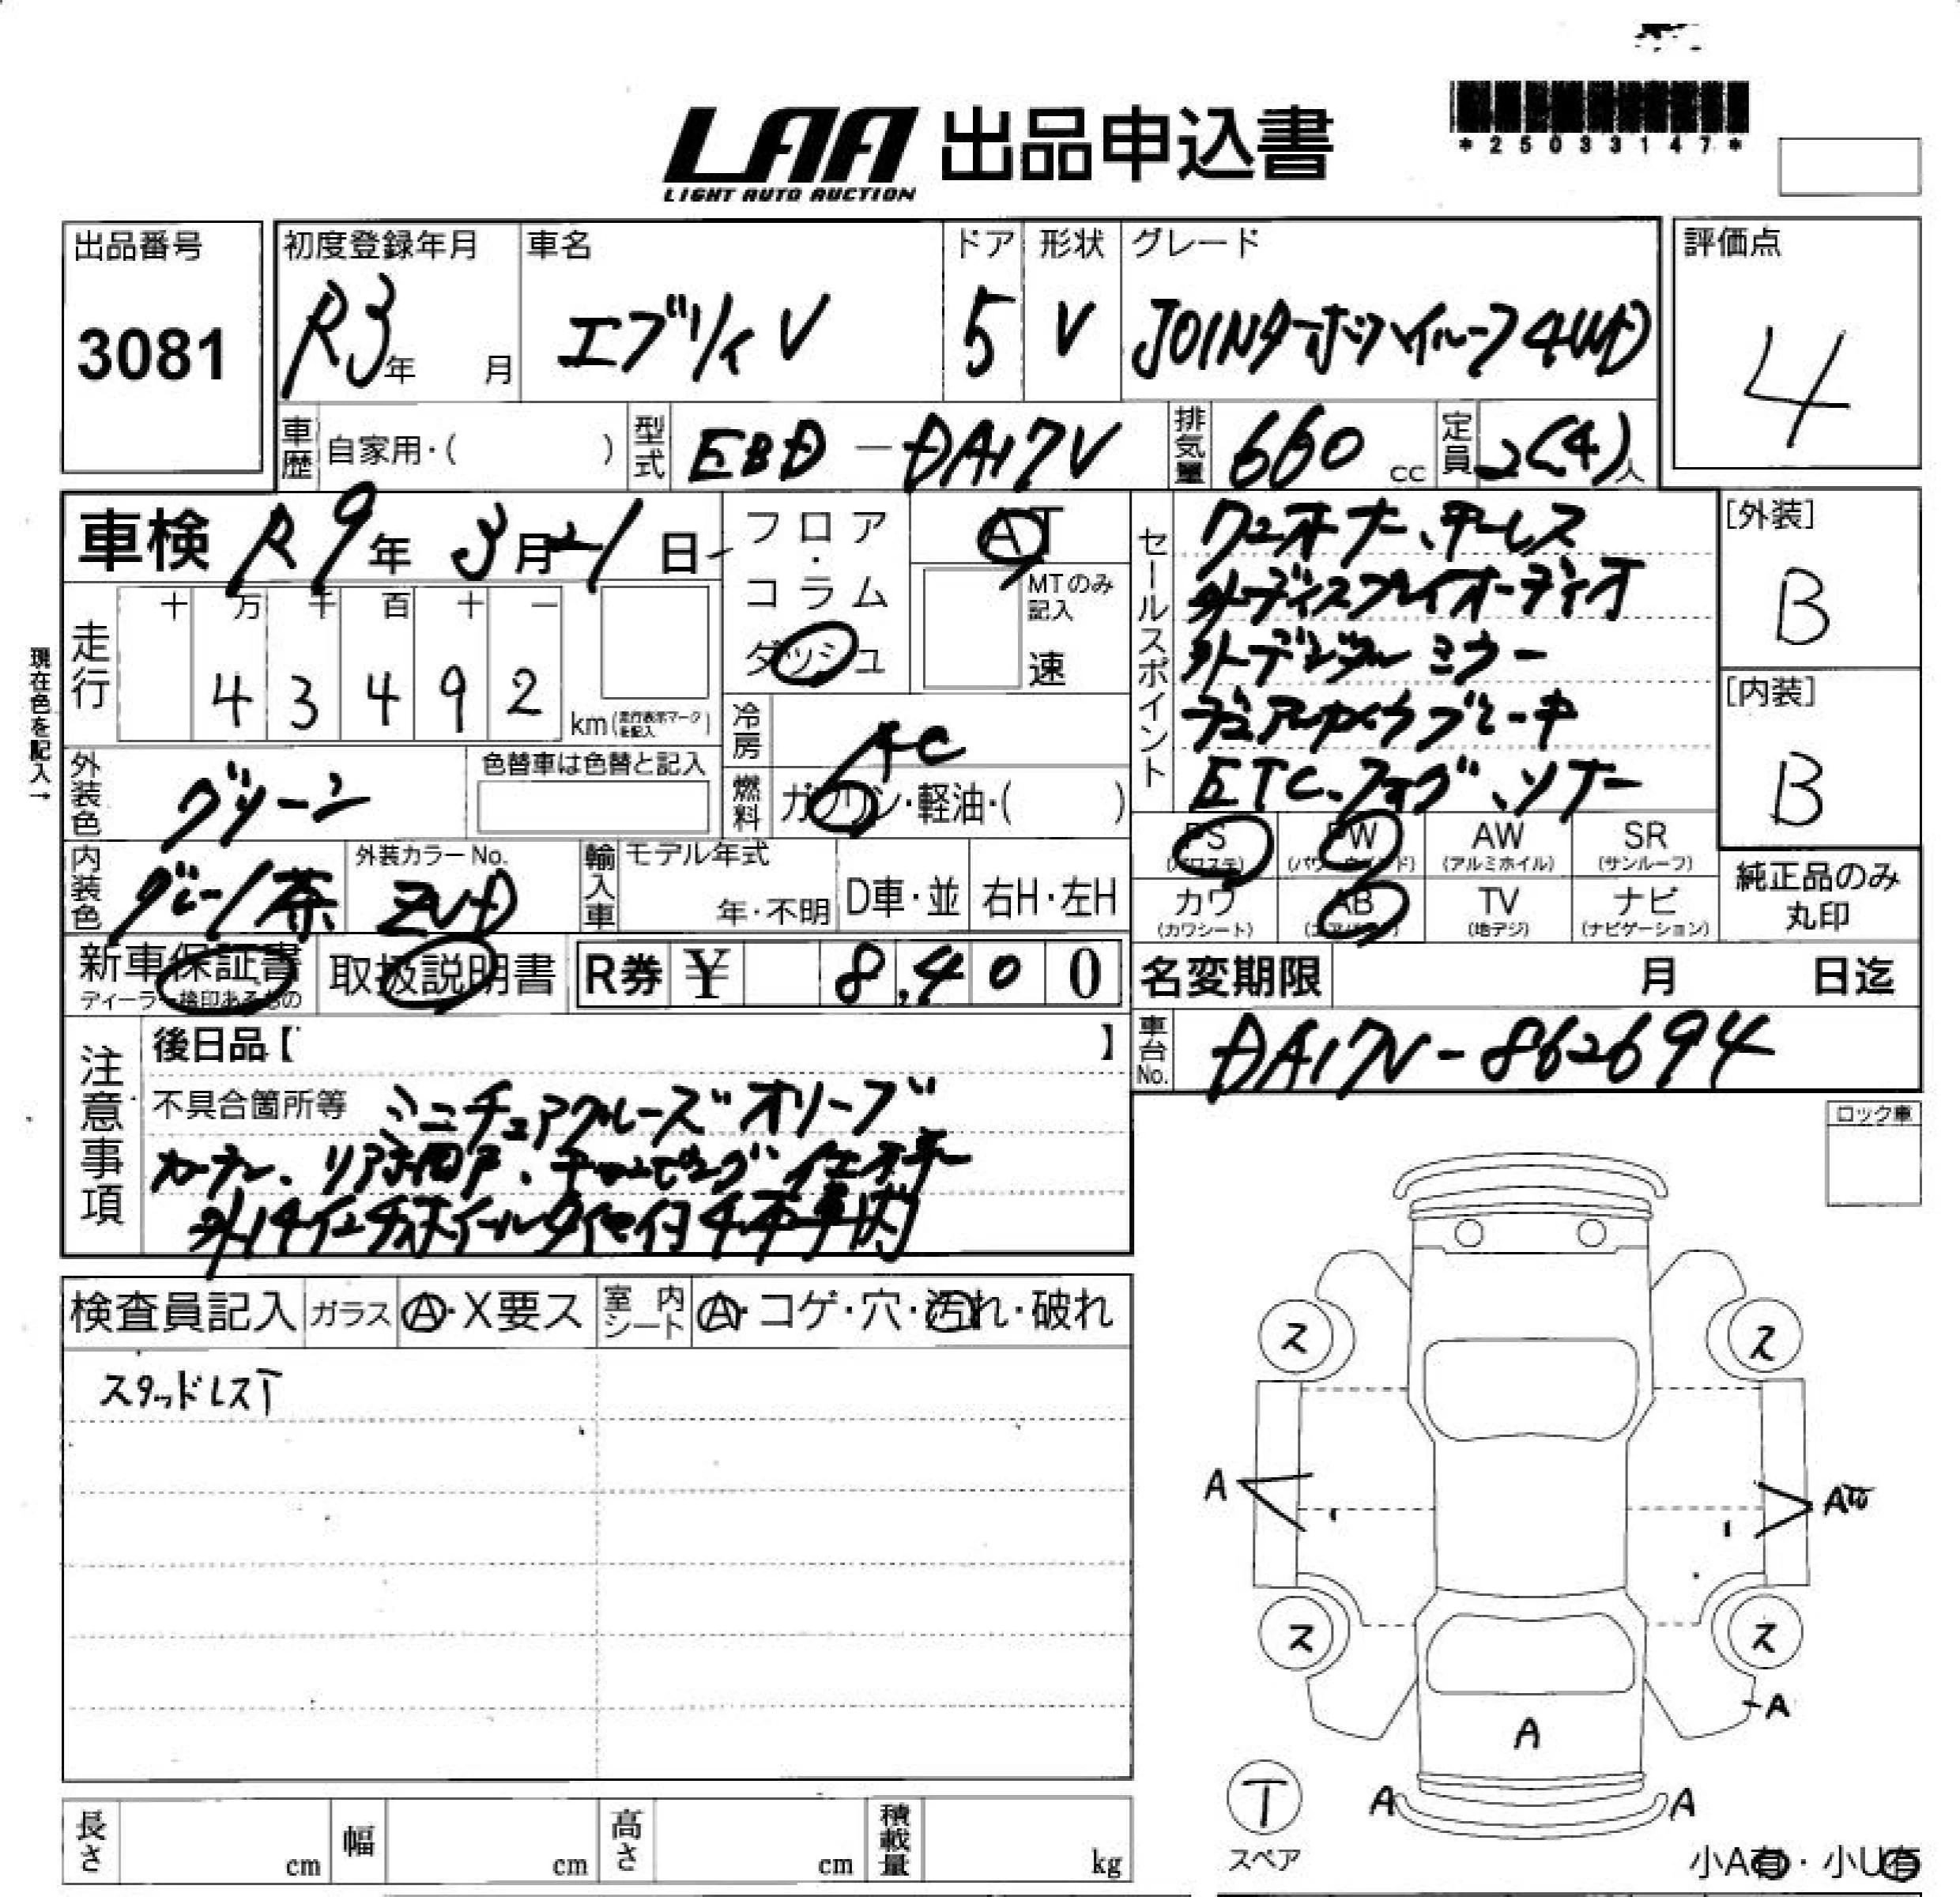 LAA 出品申込書
LIGHT AUTO AUCTION
*25033147*
出品番号
3081
初度登録年月
R3年 月
車名
エブリイV
ドア
5
形状
V
グレード
JOINターボハイルーフ4WD
評価点
4
車歴 自家用・( )
型式 EBD-DA17V
排気量 660 cc
定員 2(4)人
車検 R9年 3月21日
フロア・コラム
ダッシュ
AT
MTのみ記入
速
走行
十 万 千 百 十 一
4 3 4 9 2 km(走行表示マークを記入)
現在色を記入→
冷房 AC
燃料 ガソリン・軽油・( )
外装色 グリーン
色替車は色替と記入
内装色 グレー/茶
外装カラーNo.
ZVD
輸入車 モデル年式
年・不明
D車・並
右H・左H
セールスポイント
ワンオーナー、キーレス
外ディスプレイオーディオ
外デジタルミラー
デュアルカメラブレーキ
ETC、フォグ、ソナー
[外装]
B
[内装]
B
PS (パワステ)
PW (パワーウインド)
AW (アルミホイル)
SR (サンルーフ)
カワ (カワシート)
AB (エアバッグ)
TV (地デジ)
ナビ (ナビゲーション)
純正品のみ
丸印
新車保証書
ディーラー検印あるもの
取扱説明書
R券 ¥ 8,400
名変期限 月 日迄
車台No. DA17V-862694
注意事項
後日品【 】
不具合箇所等 ミニチュアクルーズ オリーブ
カーテン、リア網戸、キャンピング仕様車
外14インチホイールタイヤ付4本車内
ロック車
検査員記入 ガラス A・X要ス 室内シート A・コゲ・穴・汚れ・破れ
スタッドレスT
ス ス
A A
ス ス
A
A
A A
T
スペア
小A有・小U有
長さ cm 幅 cm 高さ cm 積載量 kg